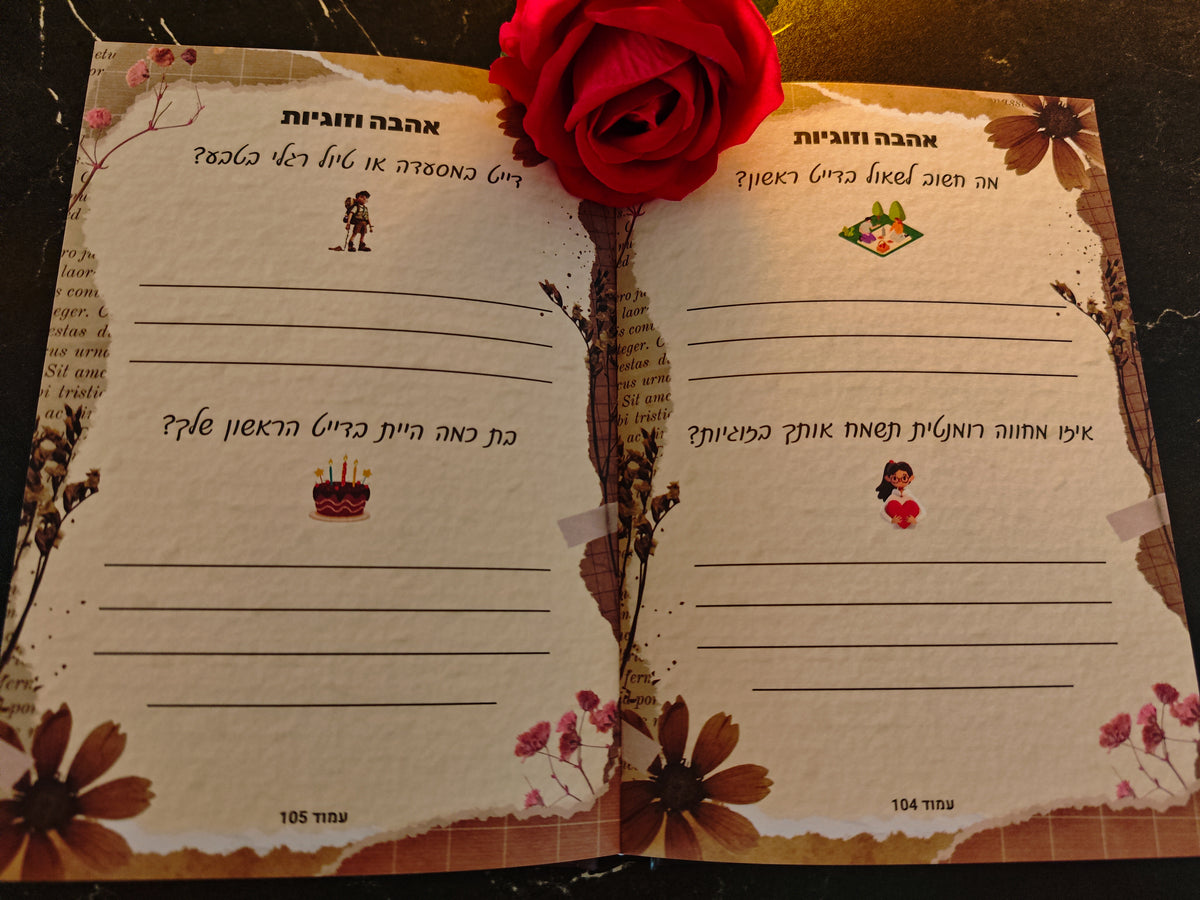 אהבה וזוגיות
מה חשוב לשאול בדייט ראשון?
איזו מחווה רומנטית תשמח אותך בזוגיות?
עמוד 104
אהבה וזוגיות
דייט במסעדה או טיול רגלי בטבע?
בת כמה היית בדייט הראשון שלך?
עמוד 105